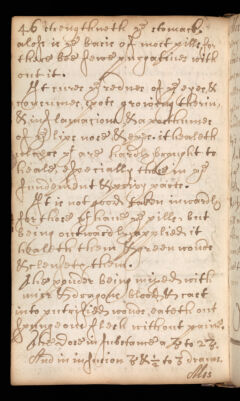 46 strengthneth ye stomack.
aloes is ye basis of most pills for
there bee fewe purgative with
out it.
It cures ye rednes of ye eyes, &
consumes spots growing therin,
& inflamacion, & aposthumes
of ye lips nose & eyes. it healeth
ulcers yt are hardly brought to
heale, especially those in ye
fundement & privy parts.
It is not good taken inwardly
for those yt have ye piles. but
being outwardly applied it
healeth them & green wounds
& clenseth them.
The pouder being mixed with
mirr & dragons blood, & cast
into putrified wounds, eateth out
spungeous flesh without paine.
The dose in substance a ʒ to 2 ʒ.
And in infusion ʒ & ½ to 3 drams.